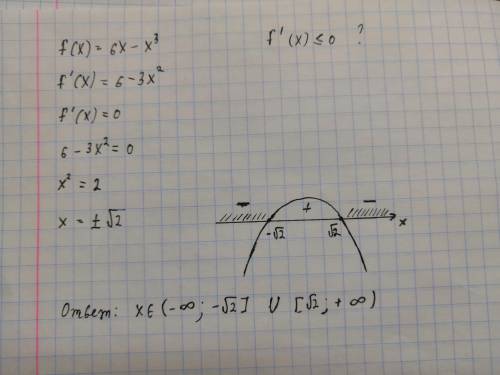 f(x) = 6x - x³
f'(x) ≤ 0 ?
f'(x) = 6 - 3x²
f'(x) = 0
6 - 3x² = 0
x² = 2
x = ± √2
− + −
-√2 √2 x
Ответ: x ∈ (-∞; -√2] ∪ [√2; +∞)